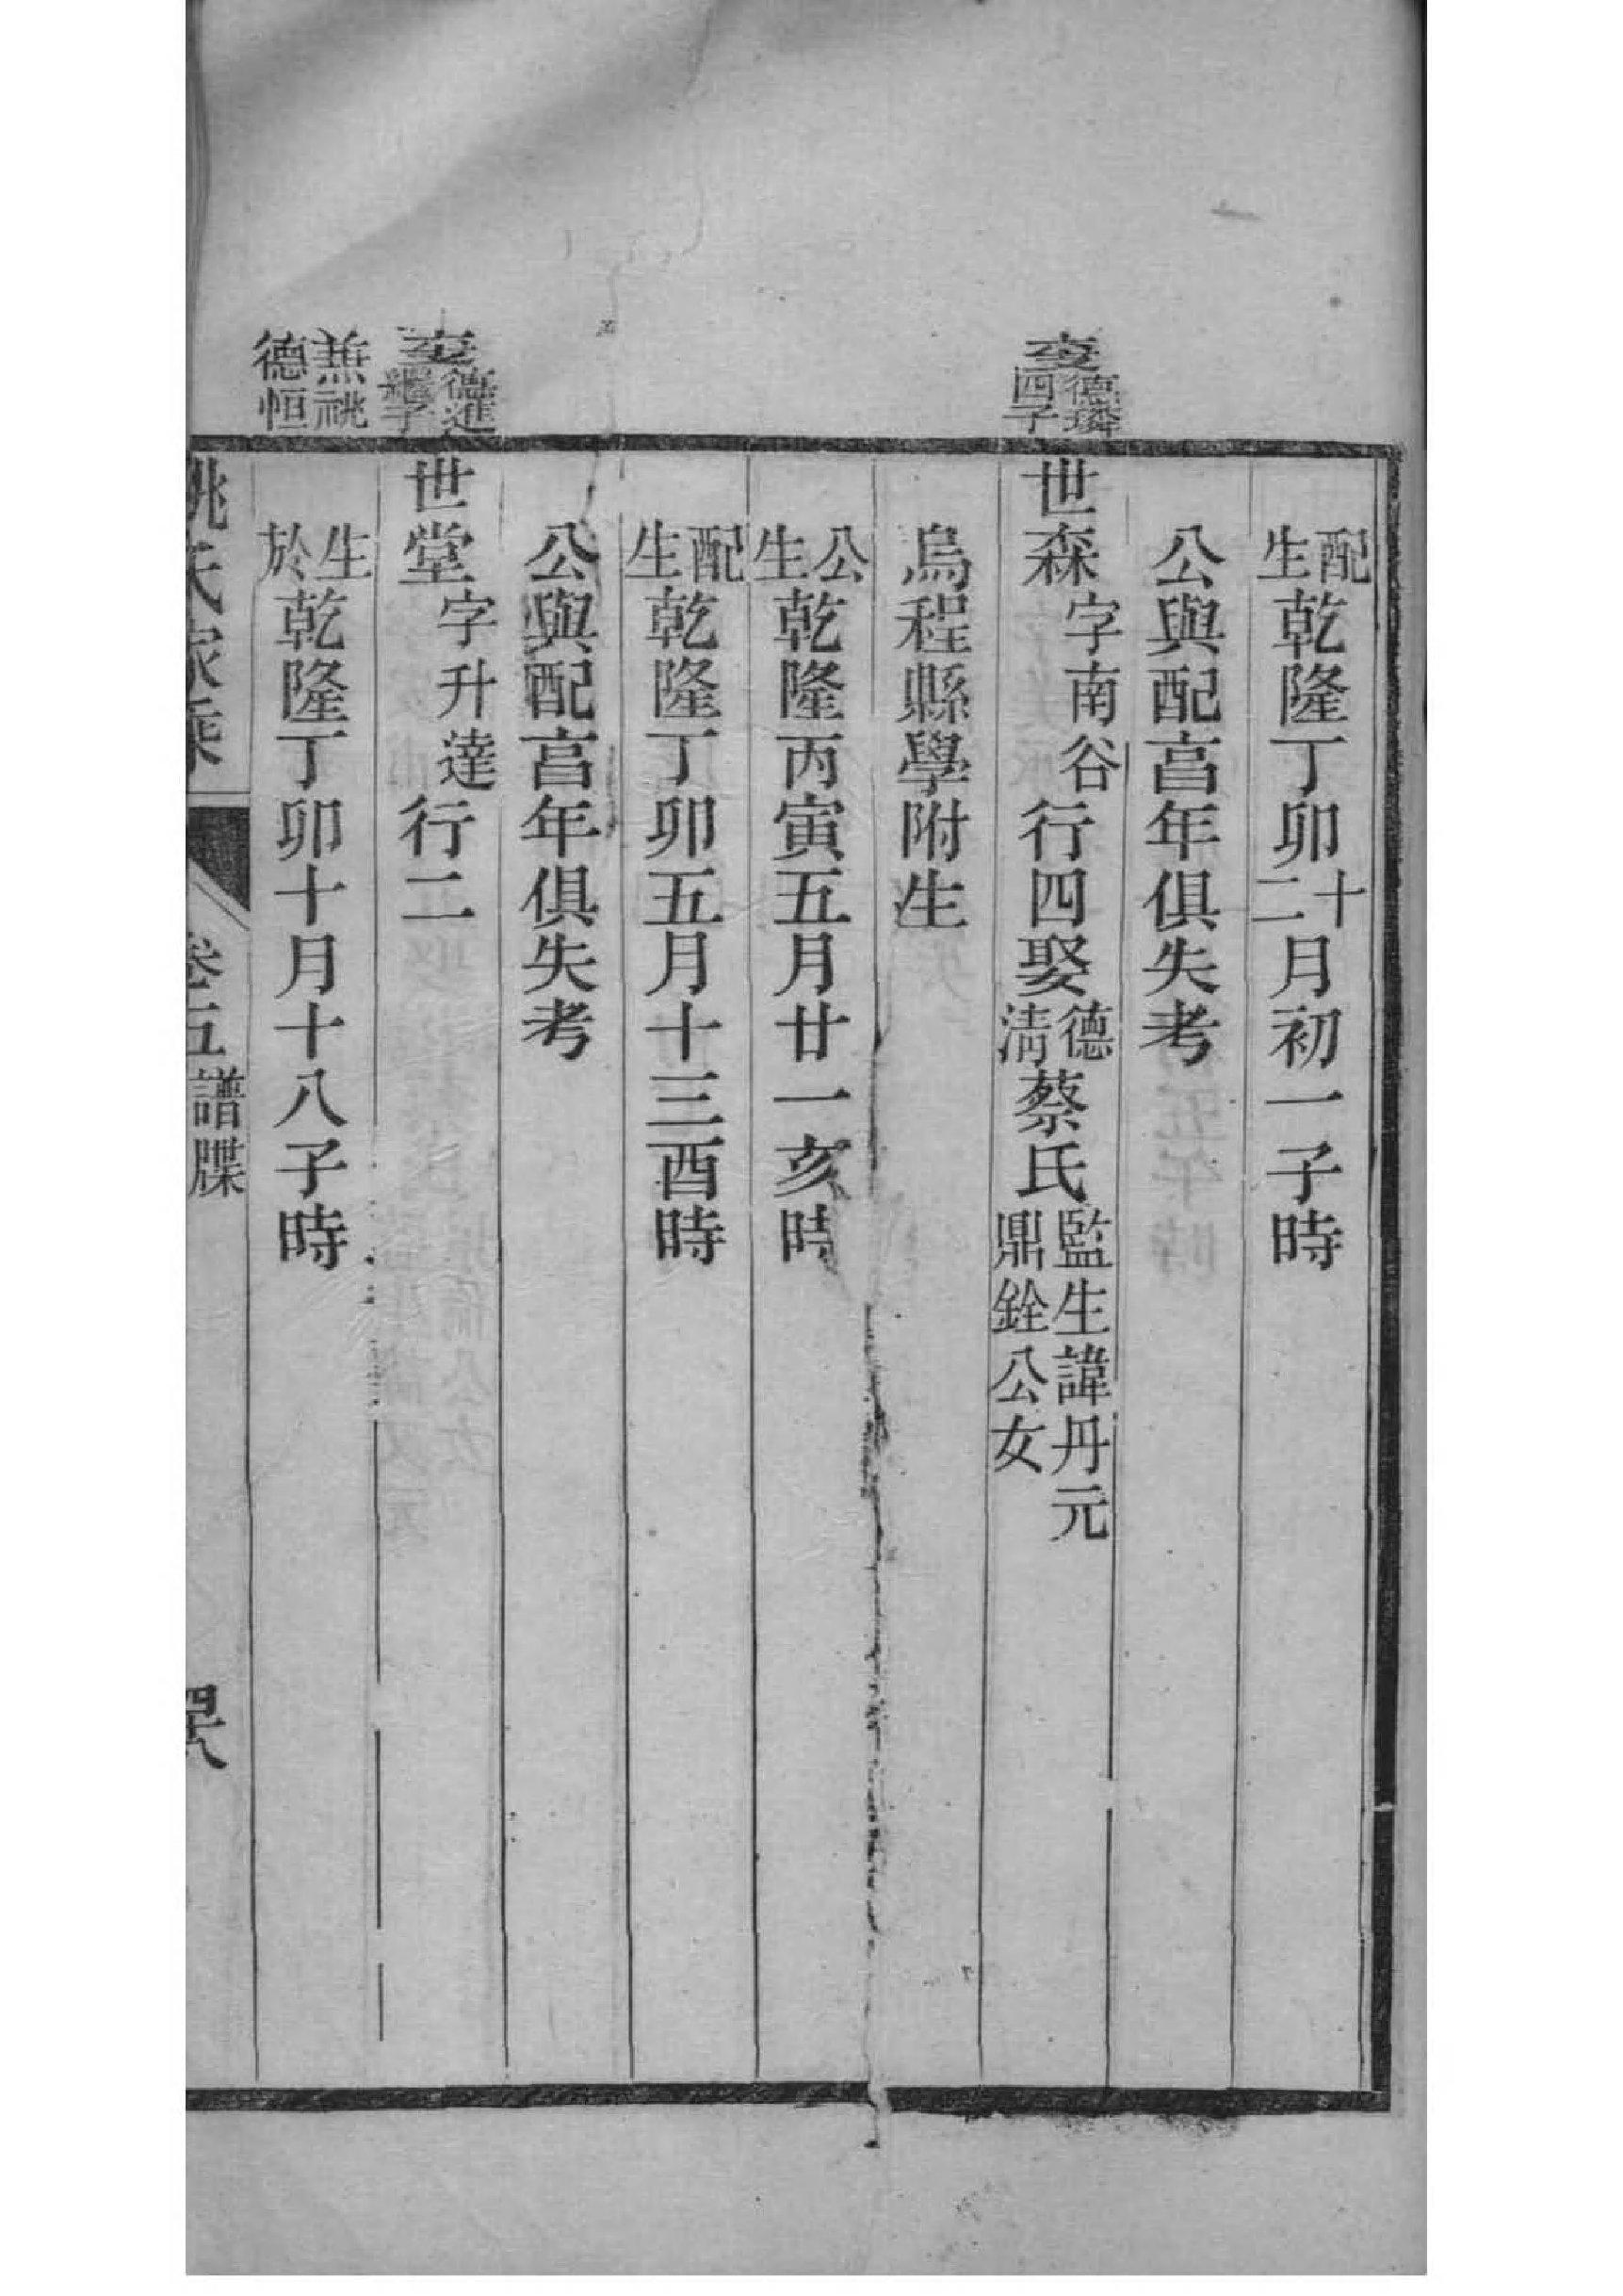 配生乾隆丁卯十二月初一子時
公與配亯年俱失考
德璘四子
世森字南谷行四娶德淸蔡氏監生諱丹元鼎銓公女
烏程縣學附生
公生乾隆丙寅五月廿一亥時
配生乾隆丁卯五月十三酉時
公與配亯年俱失考
德進繼子
世堂字升達行二
兼祧德恒
生於乾隆丁卯十月十八子時
姚氏家乘 卷五 譜牒 四十八